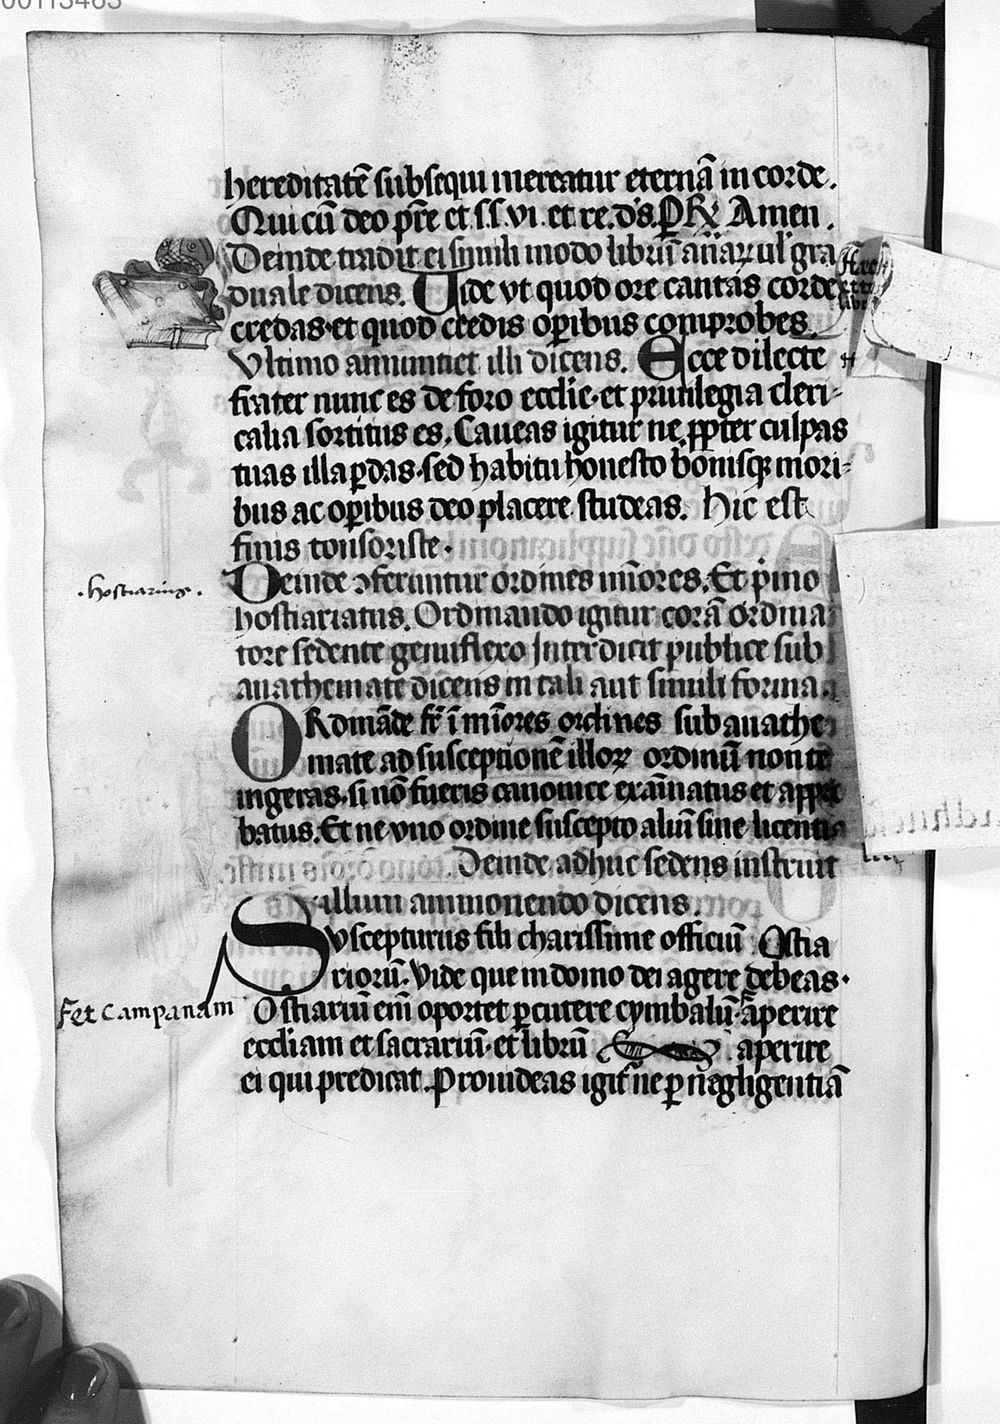 00113463
hereditatē subsequi mereatur eternā in corde.
Qui cū deo pr̄e et s.s. vi. et re. d's. P R℣ Amen.
Deinde tradit ei simili modo librū añaꝝ ul' gra
duale dicens. Uide vt quod ore cantas corde
credas et quod credis oꝑibus comprobes
Vltimo annuntiet illi dicens. Ecce dilecte
frater nunc es de foro ecclīe et priuilegia cleri-
calia sortitus es. Caueas igitur ne ꝓpter culpas
tuas illa ꝑdas sed habitu honesto bonisqꝫ mori-
bus ac oꝑibus deo placere studeas. Hic est
finis tonsoriste.
.hostiarius.
Deinde ↄferuntur ordines mīores. Et p̄mo
hostiariatus. Ordinando igitur corā ordina
tore sedente genuflexo Interdicit publice sub
anathemate dicens in tali aut simili forma.
ORdināde fr̄ ī mīores ordines sub anathe
mate ad susceptionē illoꝝ ordinū non te
ingeras. si nō fueris canonice exāinatus et appro
batus. Et ne vno ordine suscepto aliū sine licentia
Deinde adhuc sedens instruit
illum ammonendo dicens.
Suscepturus fili charissime officiū Ostia
riorū. Vide que in domo dei agere debeas.
Ostiariū eni᷑ oportet ꝑcutere cymbalū. aperire
et campanam
ecclīam et sacrariū. et librū aperire
ei qui predicat. Prouideas igit᷑ ne ꝑ negligentiā